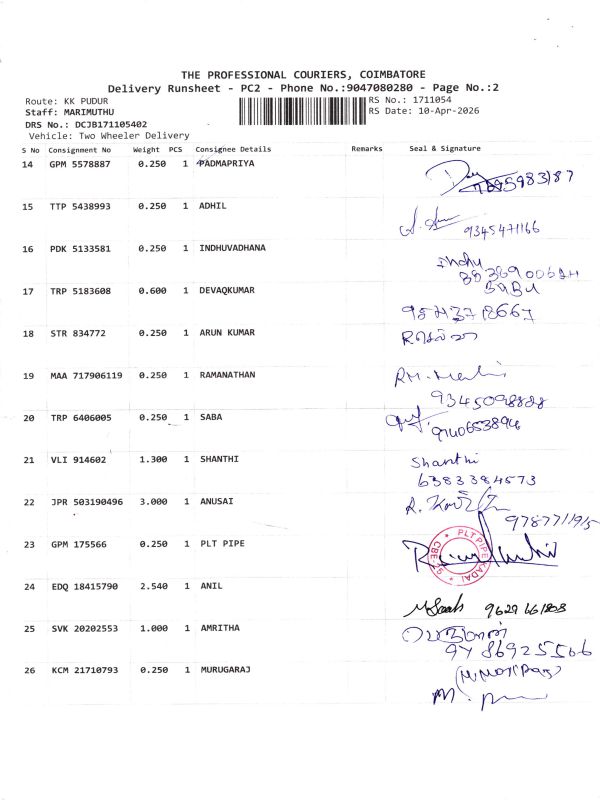 THE PROFESSIONAL COURIERS, COIMBATORE
Delivery Runsheet - PC2 - Phone No.:9047080280 - Page No.:2
Route: KK PUDUR
RS No.: 1711054
Staff: MARIMUTHU
RS Date: 10-Apr-2026
DRS No.: DCJB171105402
Vehicle: Two Wheeler Delivery
S No Consignment No Weight PCS Consignee Details Remarks Seal & Signature
14 GPM 5578887 0.250 1 PADMAPRIYA
15 TTP 5438993 0.250 1 ADHIL
9345471166
16 PDK 5133581 0.250 1 INDHUVADHANA
Indhu
BABU
17 TRP 5183608 0.600 1 DEVAQKUMAR
18 STR 834772 0.250 1 ARUN KUMAR
19 MAA 717906119 0.250 1 RAMANATHAN
9345098888
20 TRP 6406005 0.250 1 SABA
9740653894
21 VLI 914602 1.300 1 SHANTHI
Shanthi
6383384573
22 JPR 503190496 3.000 1 ANUSAI
23 GPM 175566 0.250 1 PLT PIPE
24 EDQ 18415790 2.540 1 ANIL
25 SVK 20202553 1.000 1 AMRITHA
9786925566
26 KCM 21710793 0.250 1 MURUGARAJ